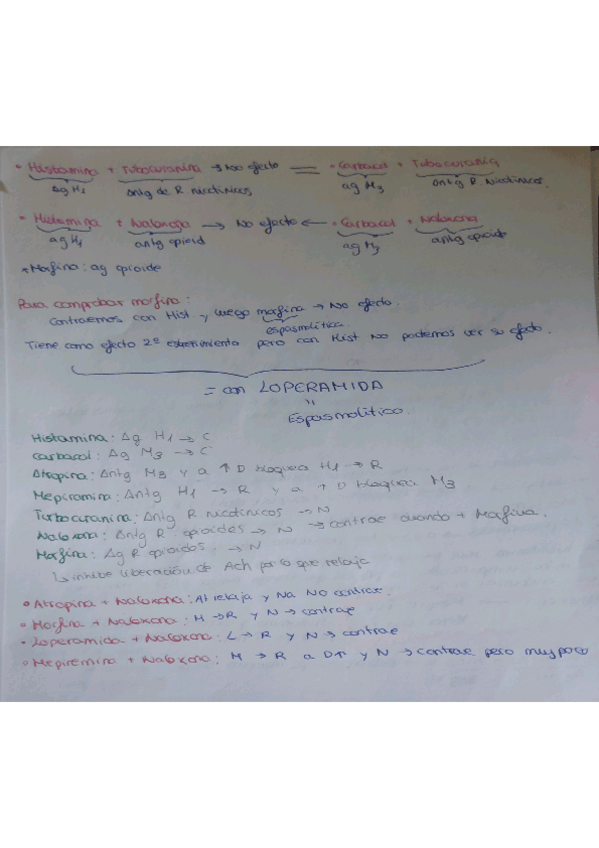 • Histamina + Tubocuranina → No efecto = • Carbacol + Tubocurania
Ag H1 Antg de R nicotínicos ag M3 Antg R. Nicotínicos.
• Histamina + Naloxona → No efecto ← • Carbacol + Naloxona
ag H1 antg opioid ag M3 antg opioide
* Morfina: ag opioide
Para comprobar morfina:
Contraemos con Hist y luego morfina → No efecto.
espasmolítica.
Tiene como efecto 2º estreñimiento pero con Hist No podemos ver su efecto.
= con LOPERAMIDA
"
Espasmolítico.
Histamina: Ag H1 → C
Carbacol: Ag M3 → C
Atropina: Antg M3 y a ↑ D bloquea H1 → R
Mepiramina: Antg H1 → R y a ↑ D bloquea M3
Turbocuranina: Antg R nicotínicos → N
Naloxona: Antg R. opioides → N → contrae cuando + Morfina.
Morfina: Ag R opioides. → N
↳ inhibe liberación de Ach por lo que relaja
• Atropina + Naloxona: At relaja y Na NO contrae.
• Morfina + Naloxona: M → R y N → contrae
• Loperamida + Naloxona: L → R y N → contrae
• Mepiremina + Naloxona: M → R a D↑ y N → contrae pero muy poco